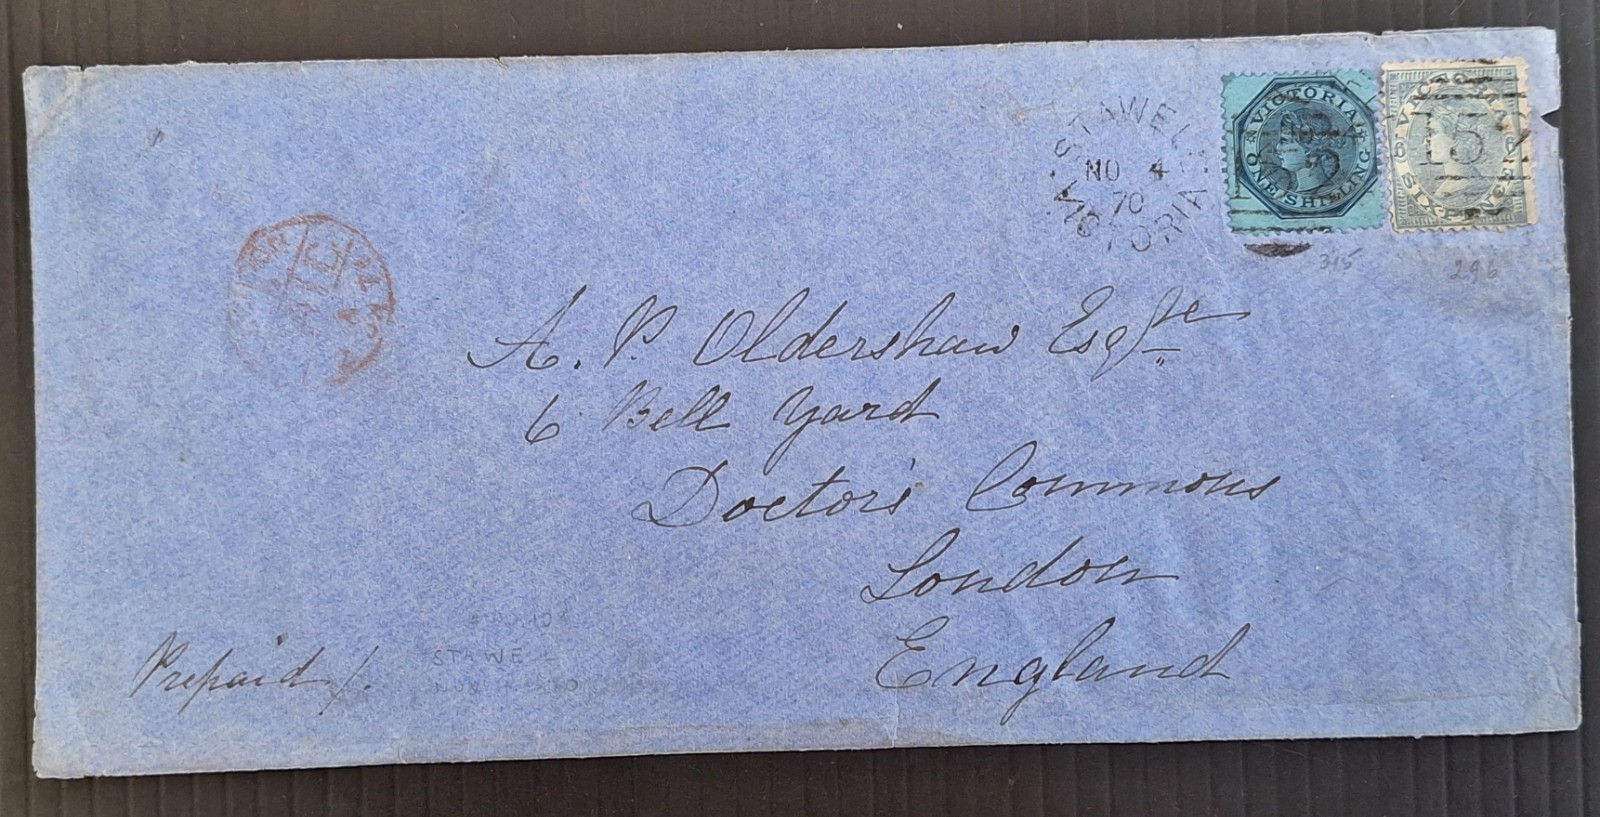 STAWELL
NO 4
70
VICTORIA
VICTORIA
ONE SHILLING
VICTORIA
6 6
SIXPENCE
15
315
296
A. P. Oldershaw Esqre
6 Bell Yard
Doctors' Commons
London
England
Prepaid /.
STAWE L